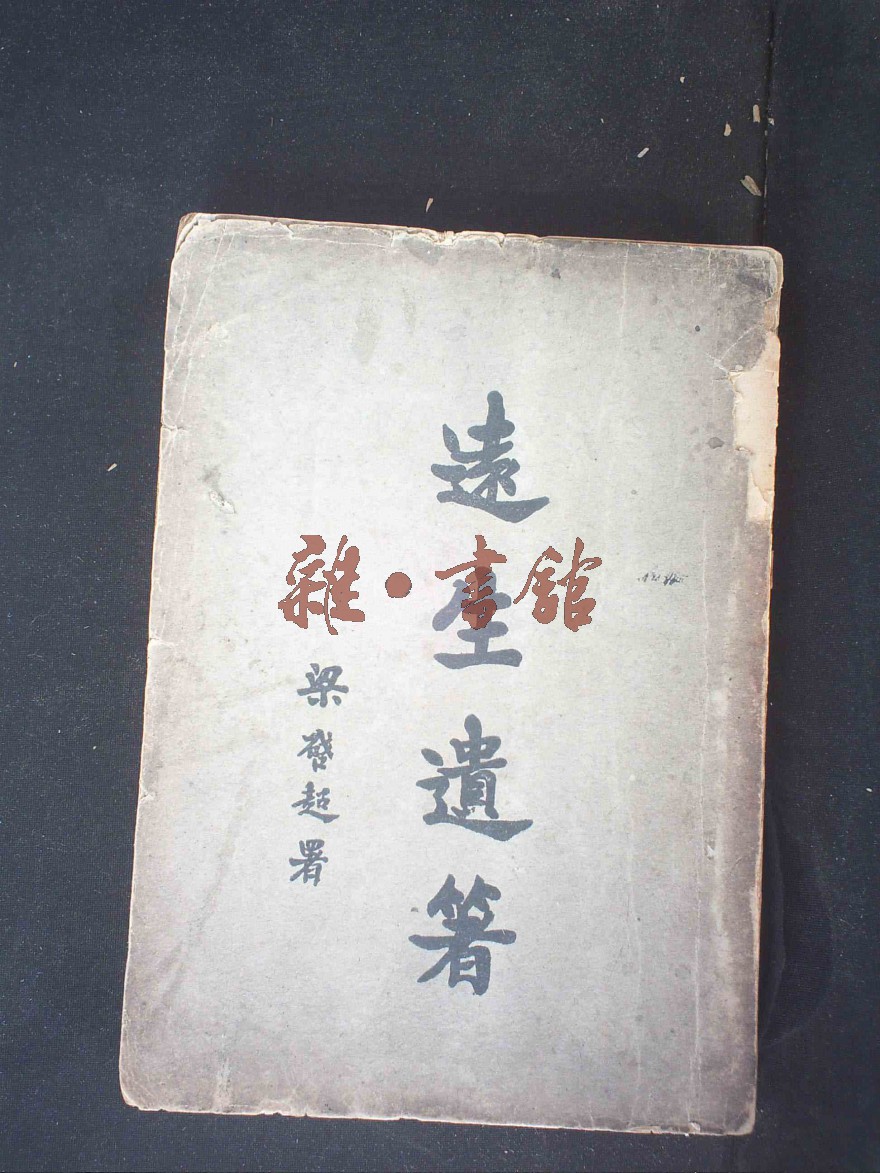 遠生遺箸
梁啓超署
雜·書館